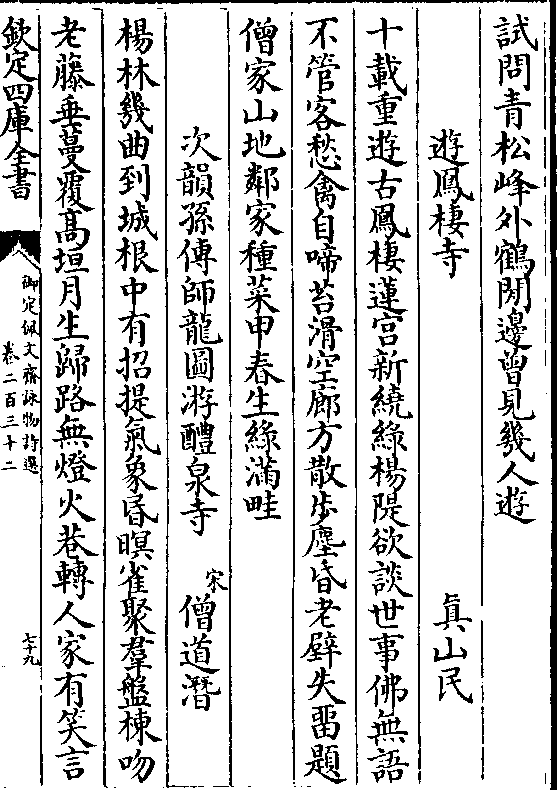 試問青松峰外鶴閒邊曽見幾人遊
遊鳳棲寺　真山民
十載重遊古鳳棲蓮宮新繞綠楊隄欲談世事佛無語
不管客愁禽自啼苔滑空廊方散步塵昏老壁失留題
僧家山地鄰家種菜甲春生綠滿畦
次韻孫傅師龍圖游醴泉寺　宋　僧道潛
楊林幾曲到城根中有招提氣象昏暝雀聚羣盤棟吻
老藤垂蔓覆髙垣月生歸路無燈火巷轉人家有笑言
欽定四庫全書
御定佩文齋詠物詩選
卷二百三十二
七十九